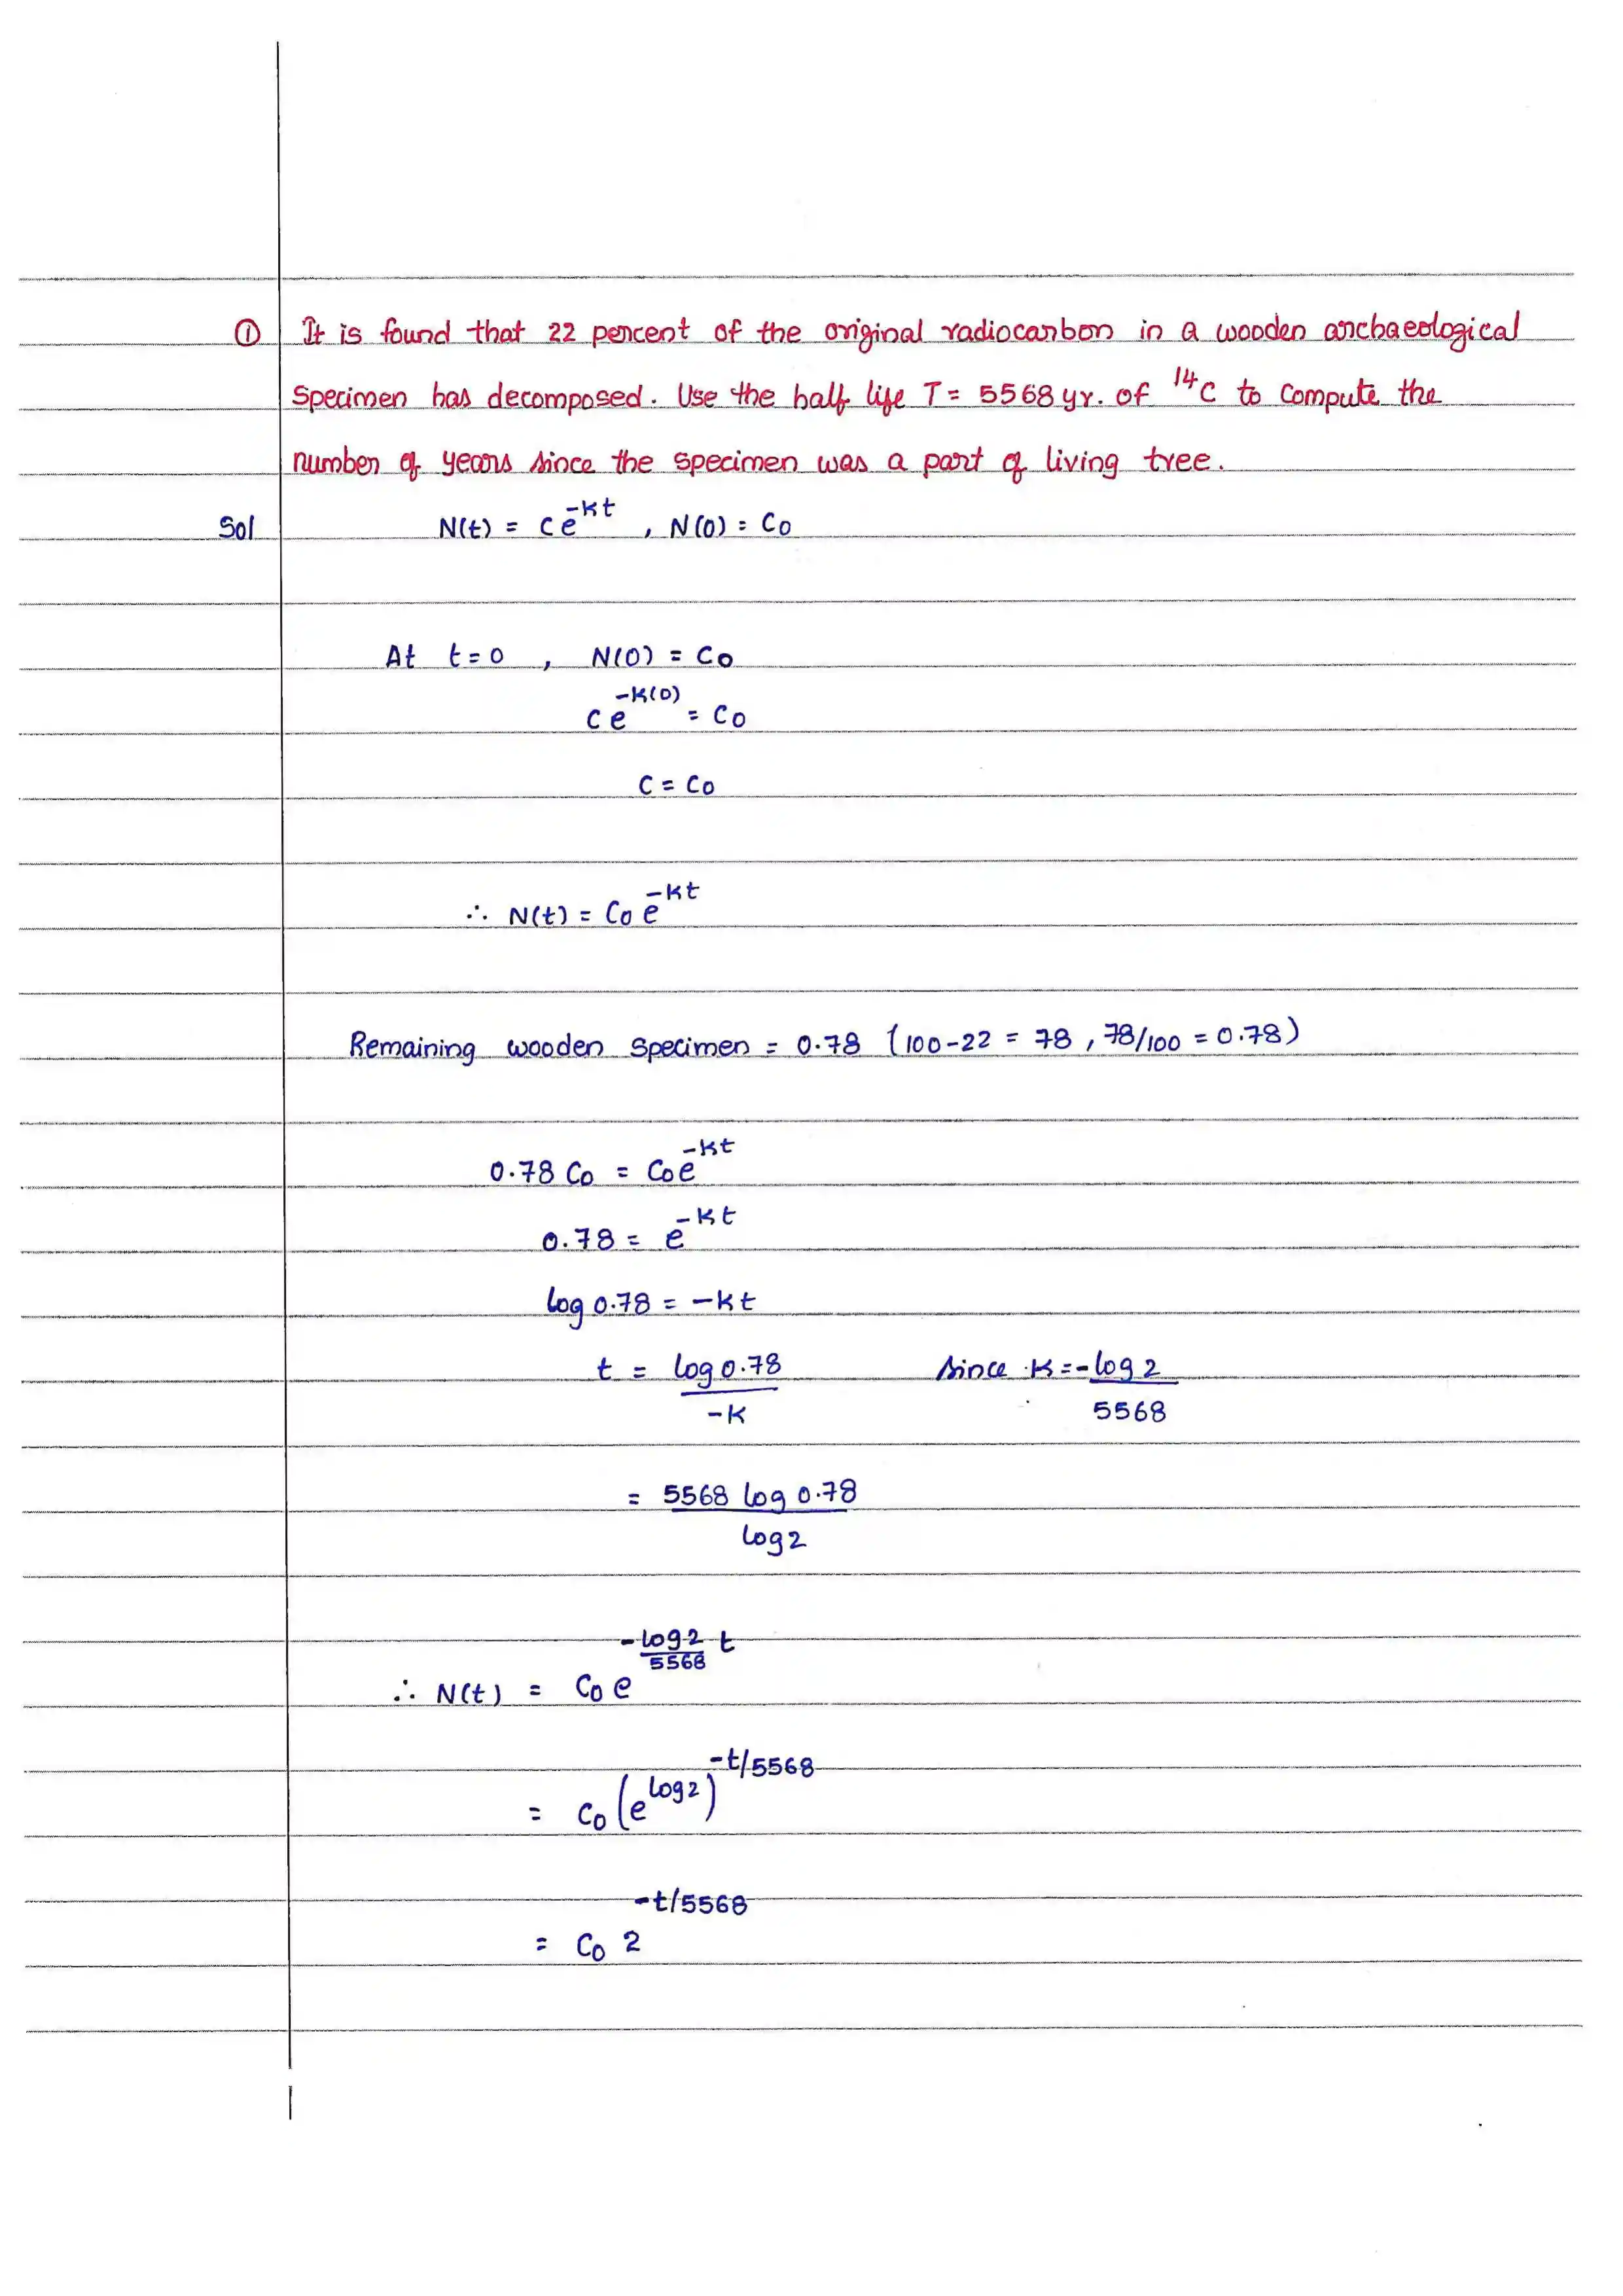 ① It is found that 22 percent of the original radiocarbon in a wooden archaeological
specimen has decomposed. Use the half life T = 5568 yr. of ¹⁴C to compute the
number of years since the specimen was a part of living tree.
Sol N(t) = Ce^{-kt} , N(0) = C₀
At t=0 , N(0) = C₀
Ce^{-k(0)} = C₀
C = C₀
∴ N(t) = C₀e^{-kt}
Remaining wooden specimen = 0.78 (100-22 = 78 , 78/100 = 0.78)
0.78 C₀ = C₀e^{-kt}
0.78 = e^{-kt}
log 0.78 = -kt
t = log 0.78 / -k since k = -log 2 / 5568
= 5568 log 0.78 / log 2
∴ N(t) = C₀e^{-log 2/5568 t}
= C₀(e^{log 2})^{-t/5568}
= C₀ 2^{-t/5568}